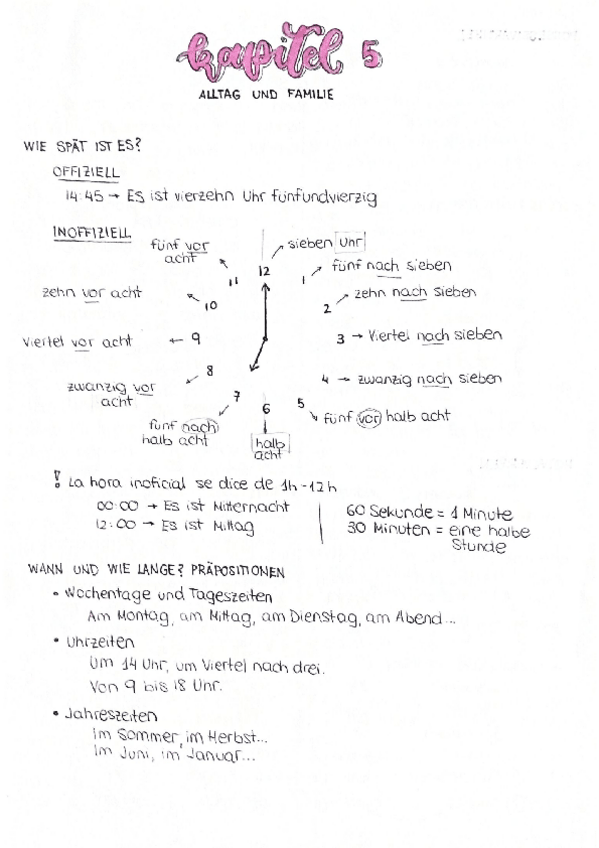 Kapitel 5
ALLTAG UND FAMILIE
WIE SPÄT IST ES?
OFFIZIELL
14:45 → ES ist vierzehn Uhr fünfundvierzig
INOFFIZIELL
sieben Uhr
fünf vor
acht
12
11
1
fünf nach sieben
zehn vor acht
10
2
zehn nach sieben
Viertel vor acht
← 9
3 → Viertel nach sieben
8
zwanzig vor
acht
4 → zwanzig nach sieben
7
5
fünf vor halb acht
fünf nach
halb acht
6
halb
acht
! La hora inoficial se dice de 1h-12h
00:00 → ES ist Mitternacht
12:00 → ES ist Mittag
60 Sekunde = 1 Minute
30 Minuten = eine halbe
Stunde
WANN UND WIE LANGE? PRÄPOSITIONEN
• Wochentage und Tageszeiten
Am Montag, am Mittag, am Dienstag, am Abend...
• Uhrzeiten
Um 14 Uhr, um Viertel nach drei.
Von 9 bis 18 Uhr.
• Jahreszeiten
Im Sommer, im Herbst...
Im Juni, im Januar...